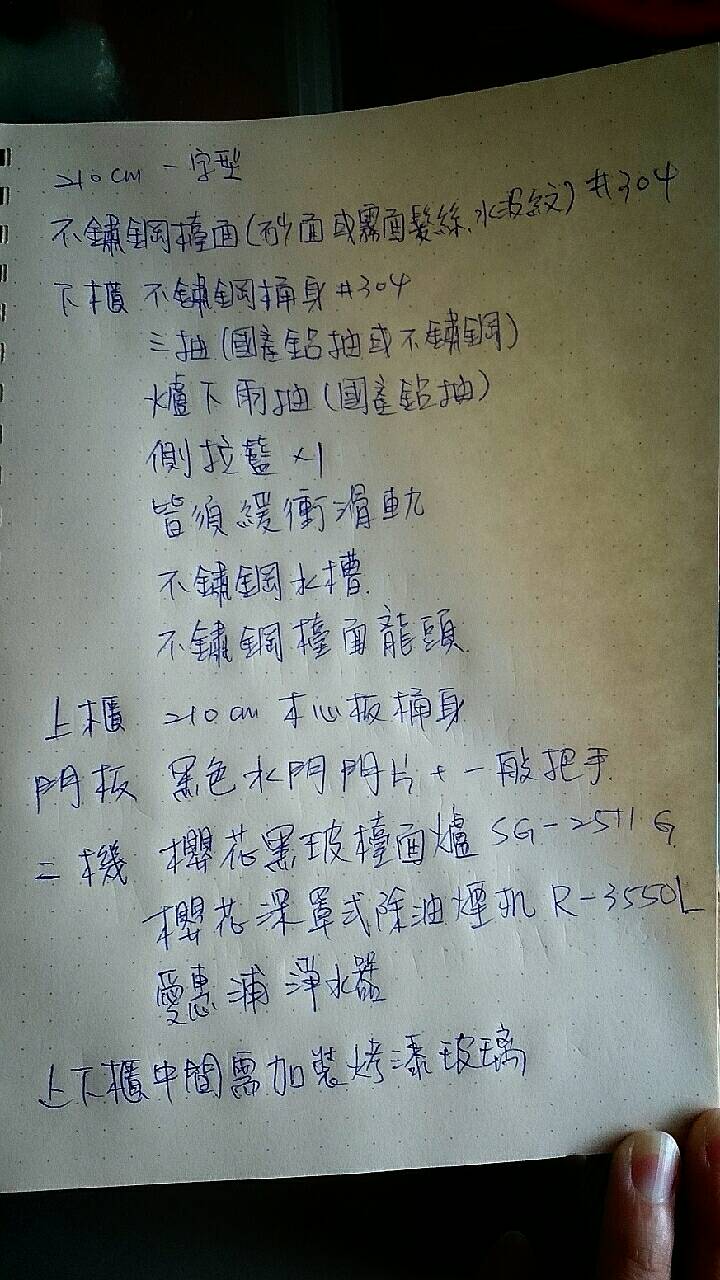 210cm 一字型
不鏽鋼檯面(砂面或霧面髮絲、水波紋) #304
下櫃 不鏽鋼桶身#304
三抽(國產鋁抽或不鏽鋼)
爐下兩抽(國產鋁抽)
側拉籃×1
皆須緩衝滑軌
不鏽鋼水槽
不鏽鋼檯面龍頭
上櫃 210cm 木心板桶身
門板 黑色水門門片+一般把手
二機 櫻花黑玻檯面爐 SG-2511G
櫻花深罩式除油煙机 R-3550L
愛惠浦淨水器
上下櫃中間需加裝烤漆玻璃